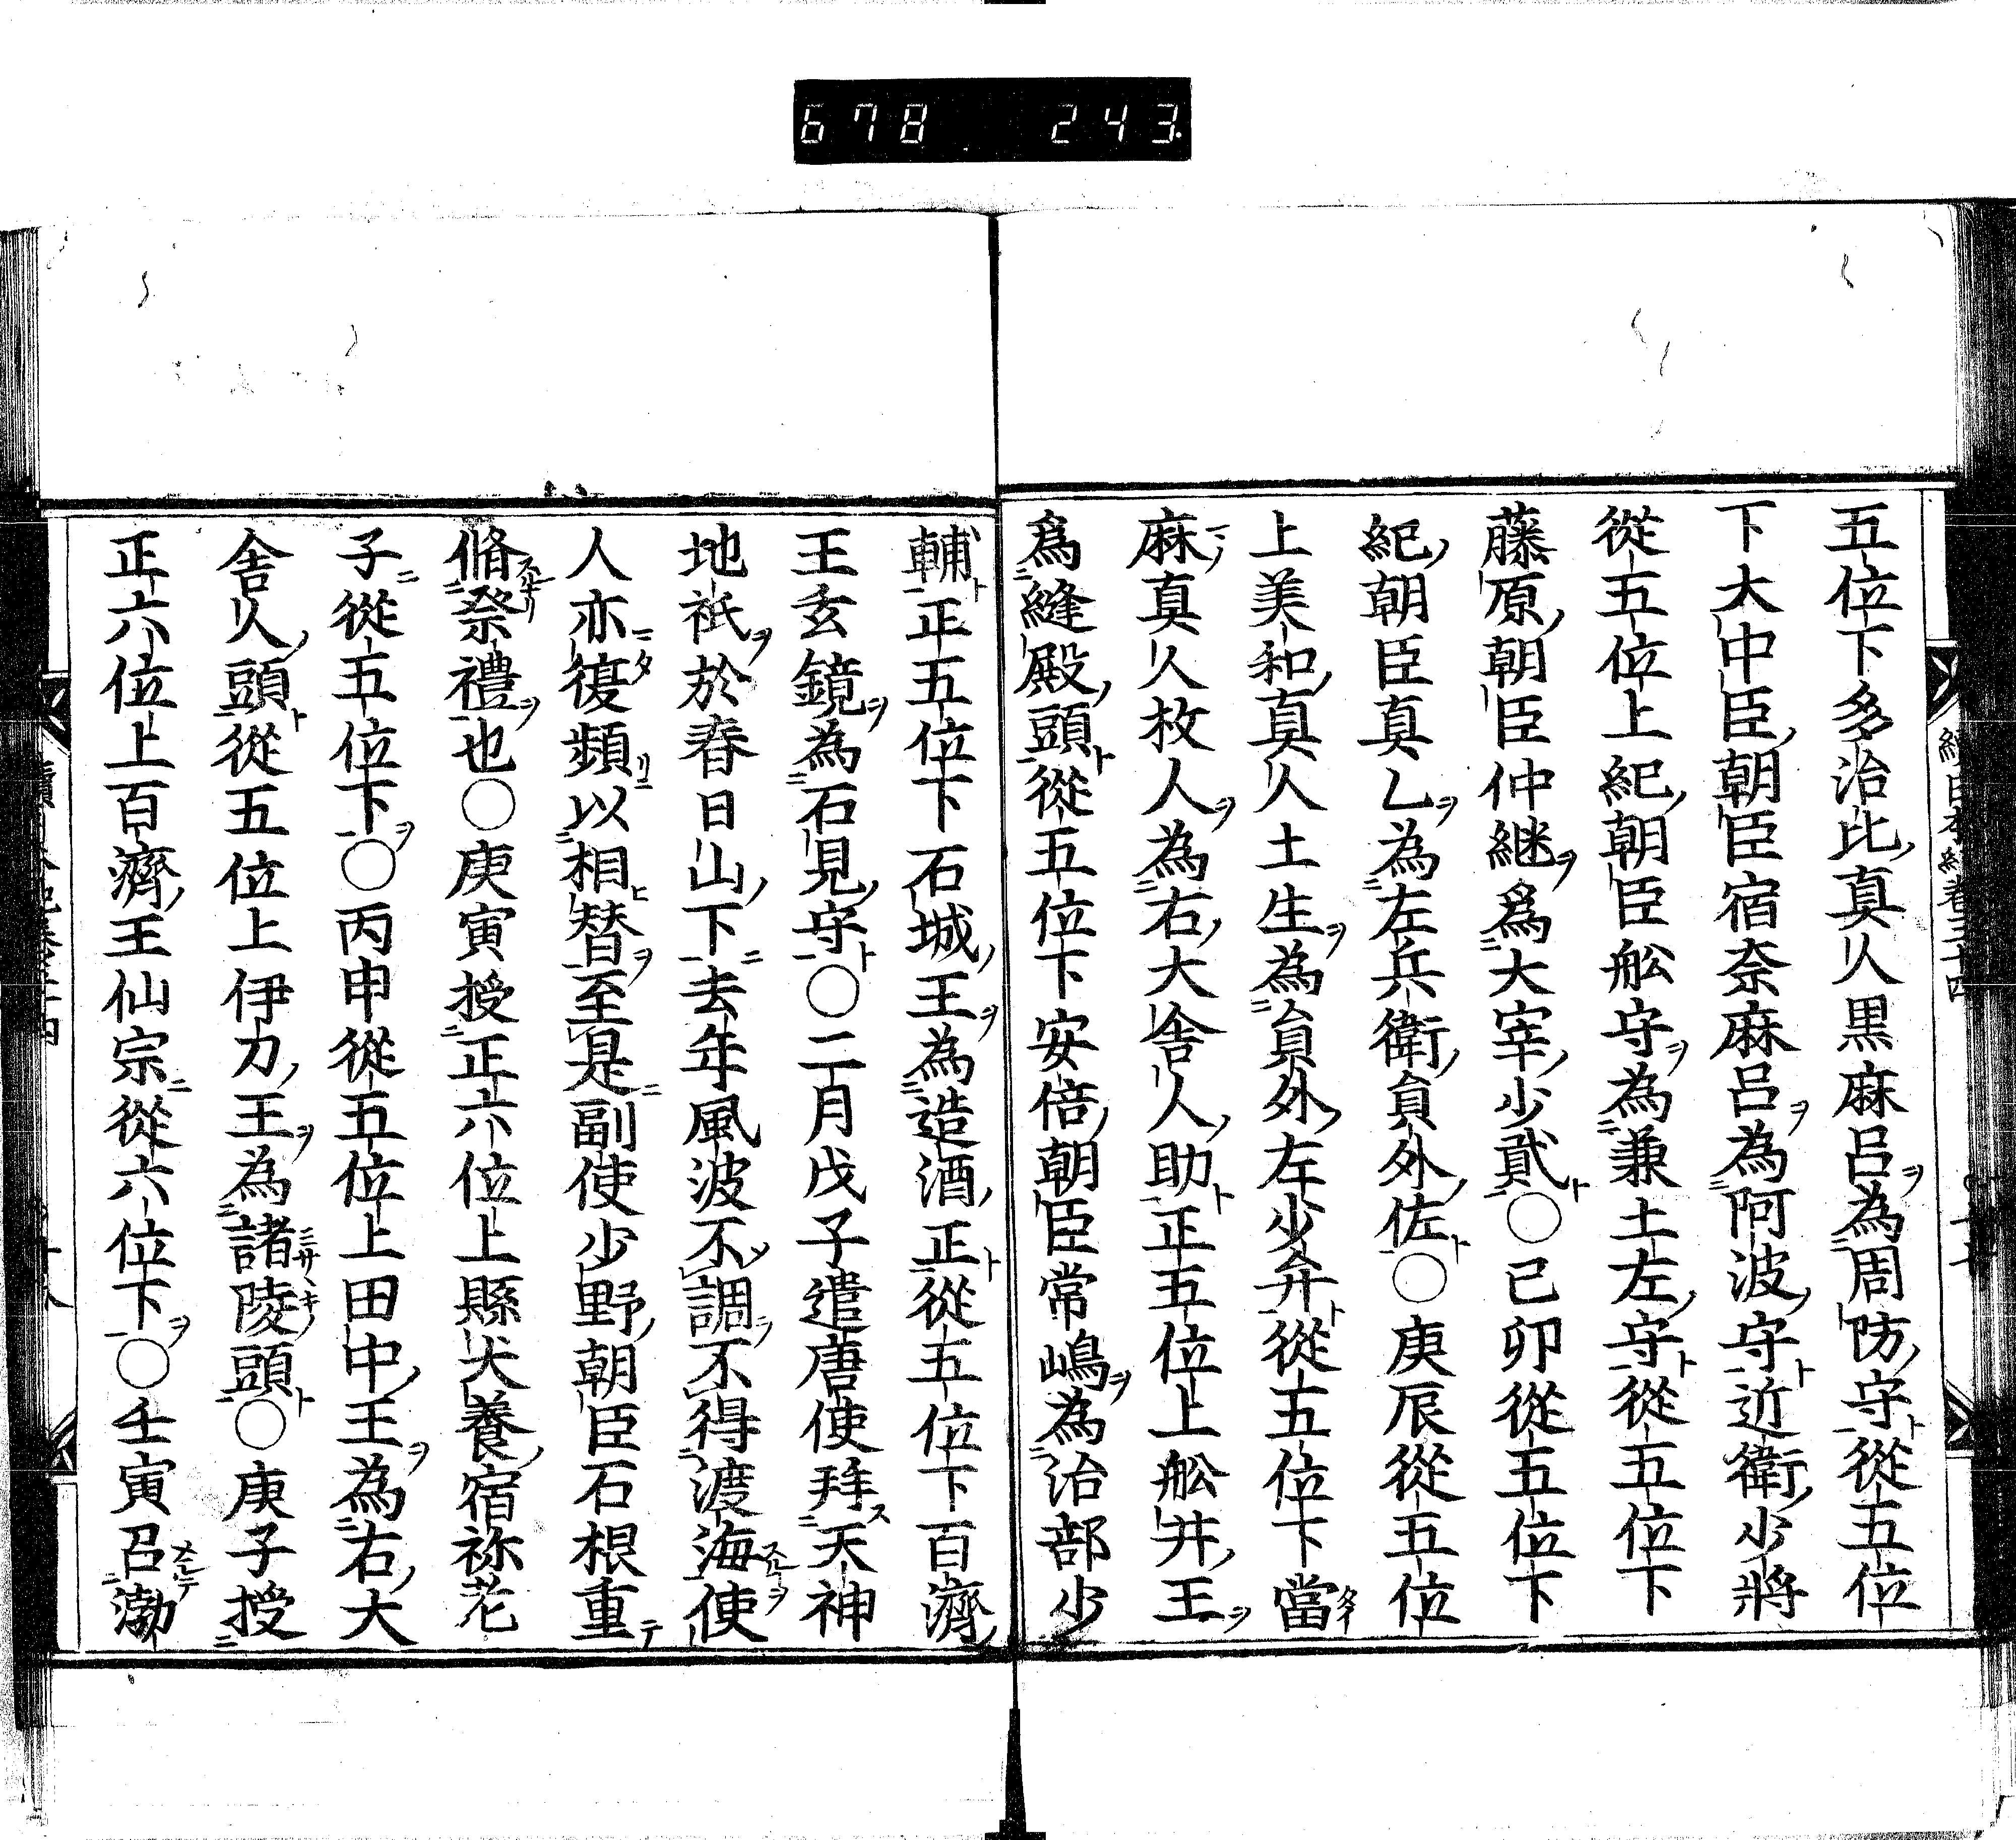 678 243.
五位下多治比真人黒麻呂為周防守從五位
下大中臣朝臣宿奈麻呂為阿波守近衛少將
從五位上紀朝臣舩守為兼土左守從五位下
藤原朝臣仲継爲大宰少貳○己卯從五位下
紀朝臣真乙為左兵衛員外佐○庚辰從五位
上美和真人土生為員外左少弁從五位下當
麻真人枚人為右大舎人助正五位上舩井王
爲縫殿頭從五位下安倍朝臣常嶋為治部少
輔正五位下石城王為造酒正從五位下百濟
王玄鏡為石見守○二月戊子遣唐使拜天神
地祇於春日山下去年風波不調不得渡海使
人亦復頻以相替至是副使少野朝臣石根重
脩祭禮也○庚寅授正六位上縣犬養宿祢老
子從五位下○丙申從五位上田中王為右大
舎人頭從五位上伊力王為諸陵頭○庚子授
正六位上百濟王仙宗從六位下○壬寅召渤